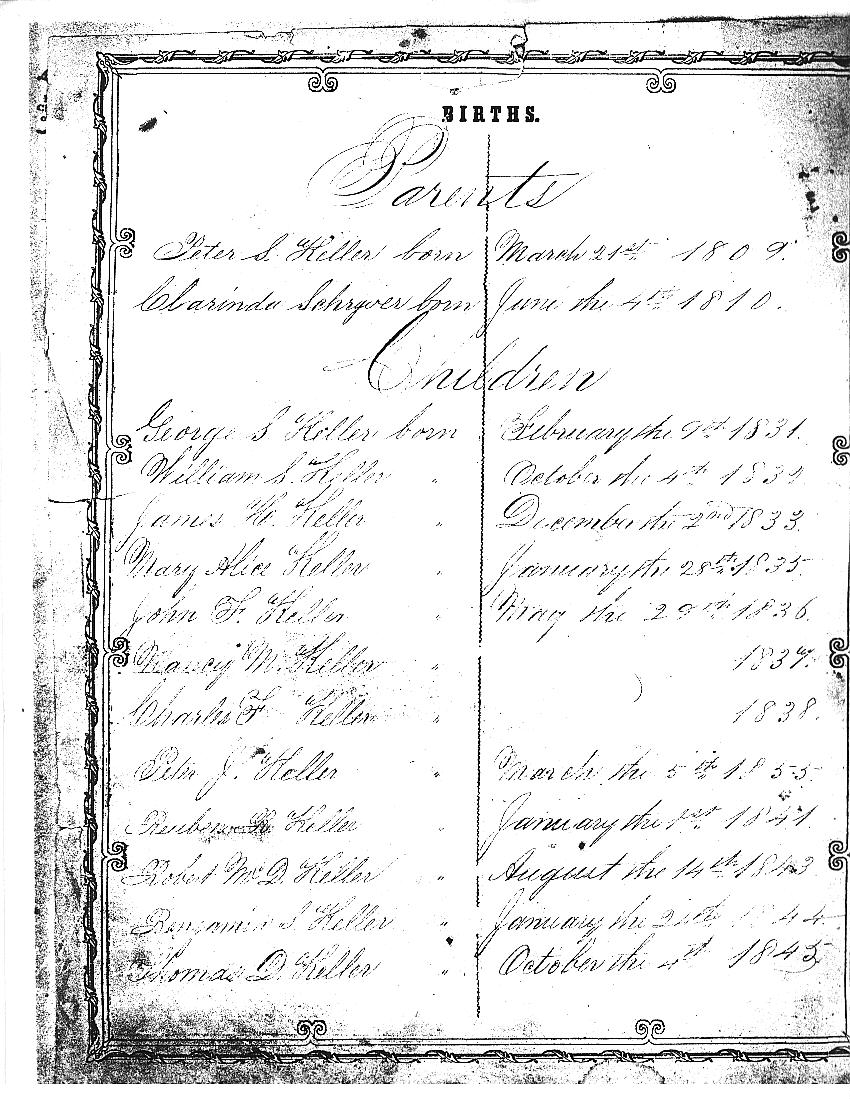 BIRTHS.
Parents
Peter S. Keller born March 21st 1809.
Clarinda Schryver born June the 4th 1810.
Children
George S Keller born February the 9th 1831.
William S. Keller " October the 4th 1832
James H. Keller " December the 2nd 1833
Mary Alice Keller " January the 28th 1835.
John F. Keller " May the 29th 1836.
Nancy M. Keller " 1837.
Charles F Keller " 1838.
Peter J. Keller " March the 5th 1855.
Reuben Keller January the 1st 1841.
Robert Mc D. Keller " August the 14th 1843
Benjamin S. Keller " January the 44
Thomas D. Keller " October the 4th 1845